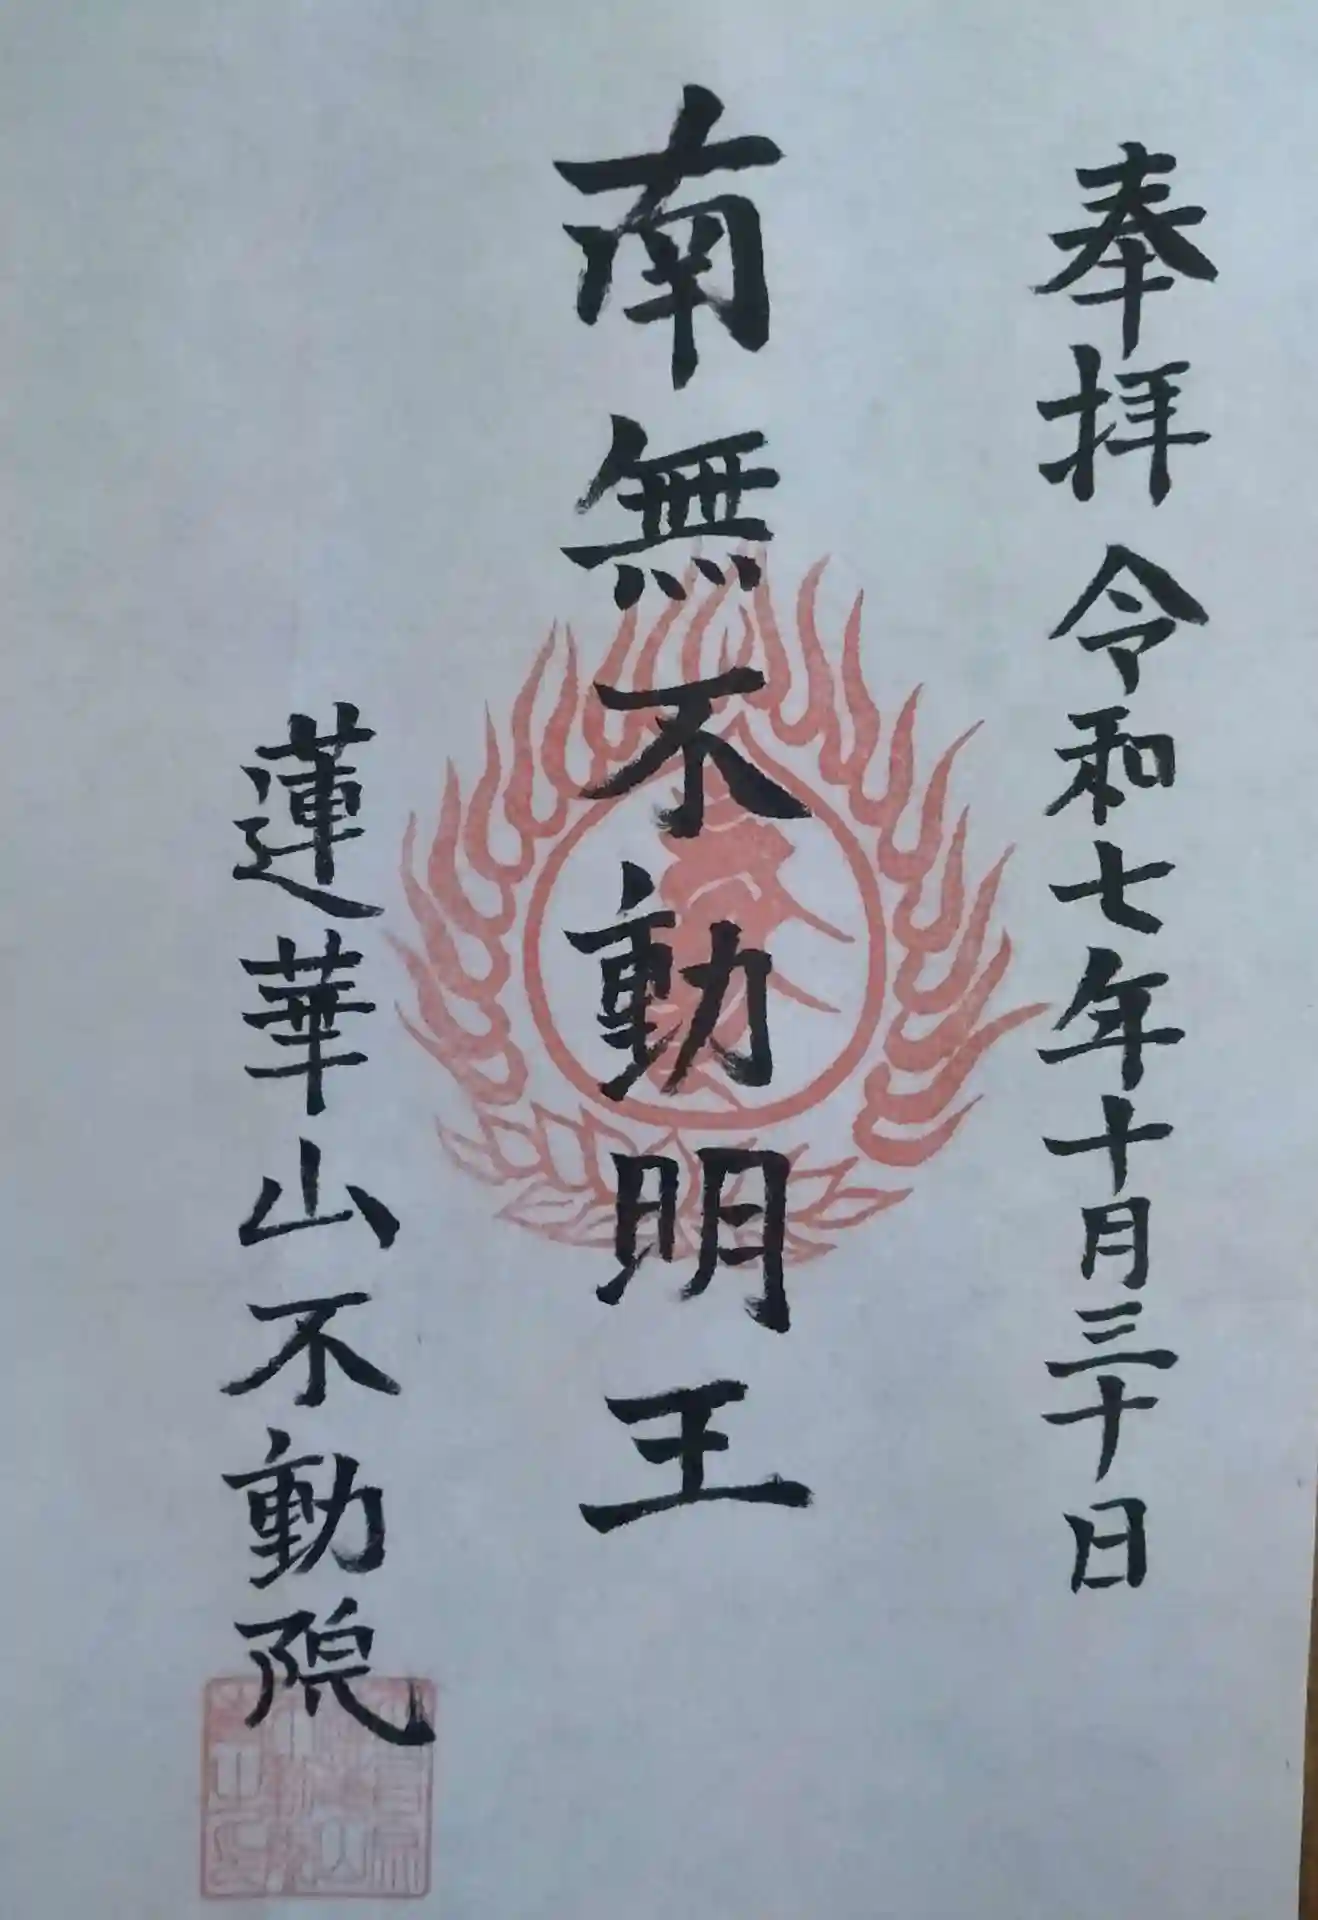 奉拝 令和七年十月三十日
南無不動明王
蓮華山不動院